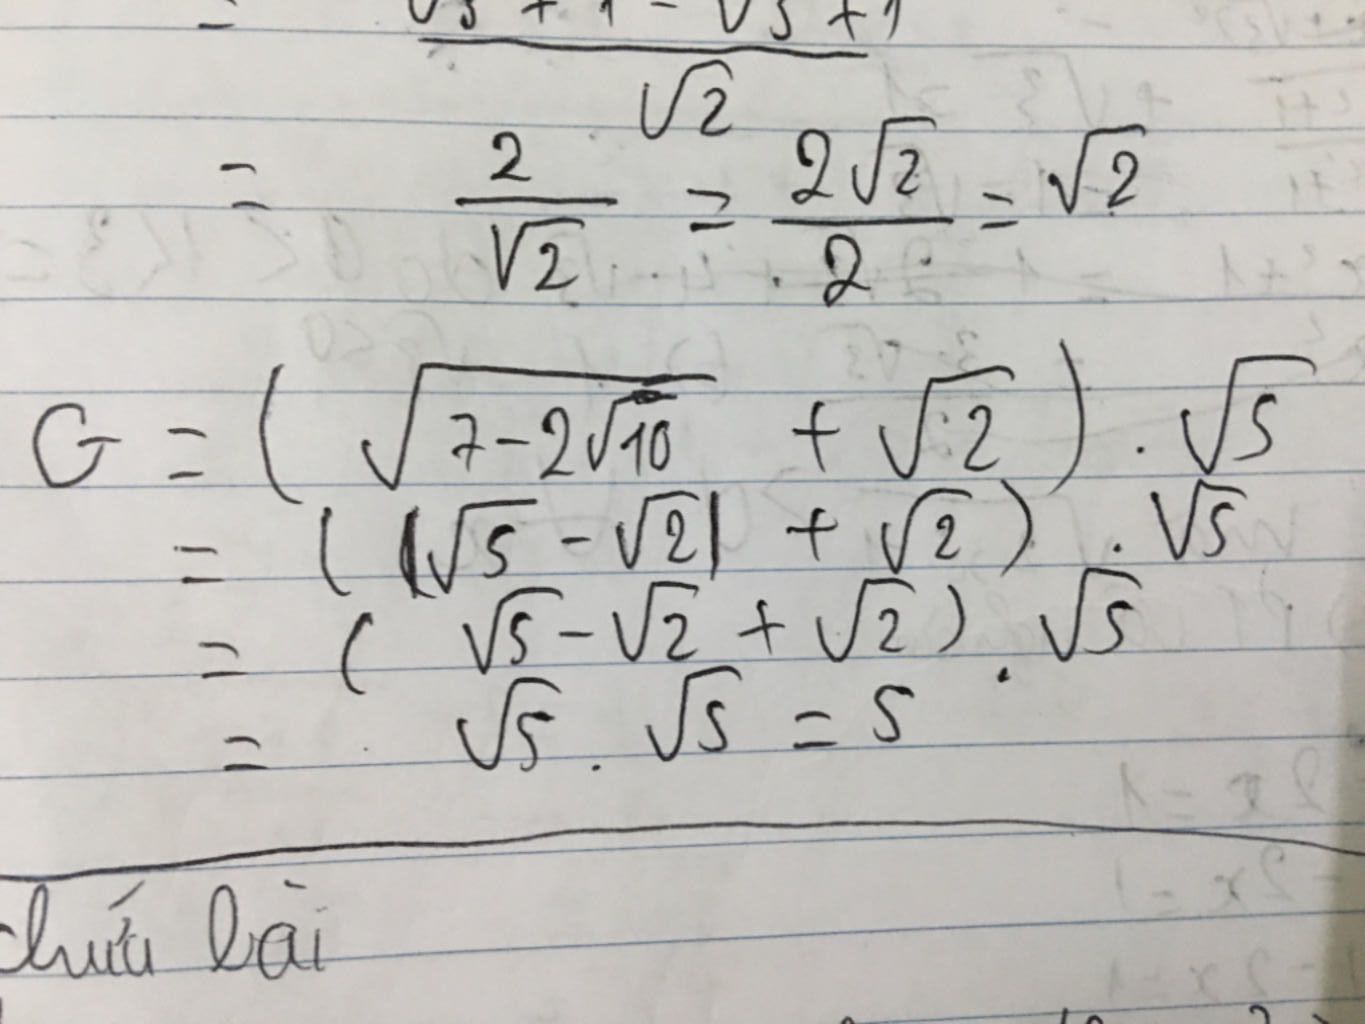 = √2
= 2/√2 = 2√2/2 = √2
G = ( √(7-2√10) + √2 ) . √5
= ( |√5 - √2| + √2 ) . √5
= ( √5 - √2 + √2 ) . √5
= √5 . √5 = 5
chứa bài